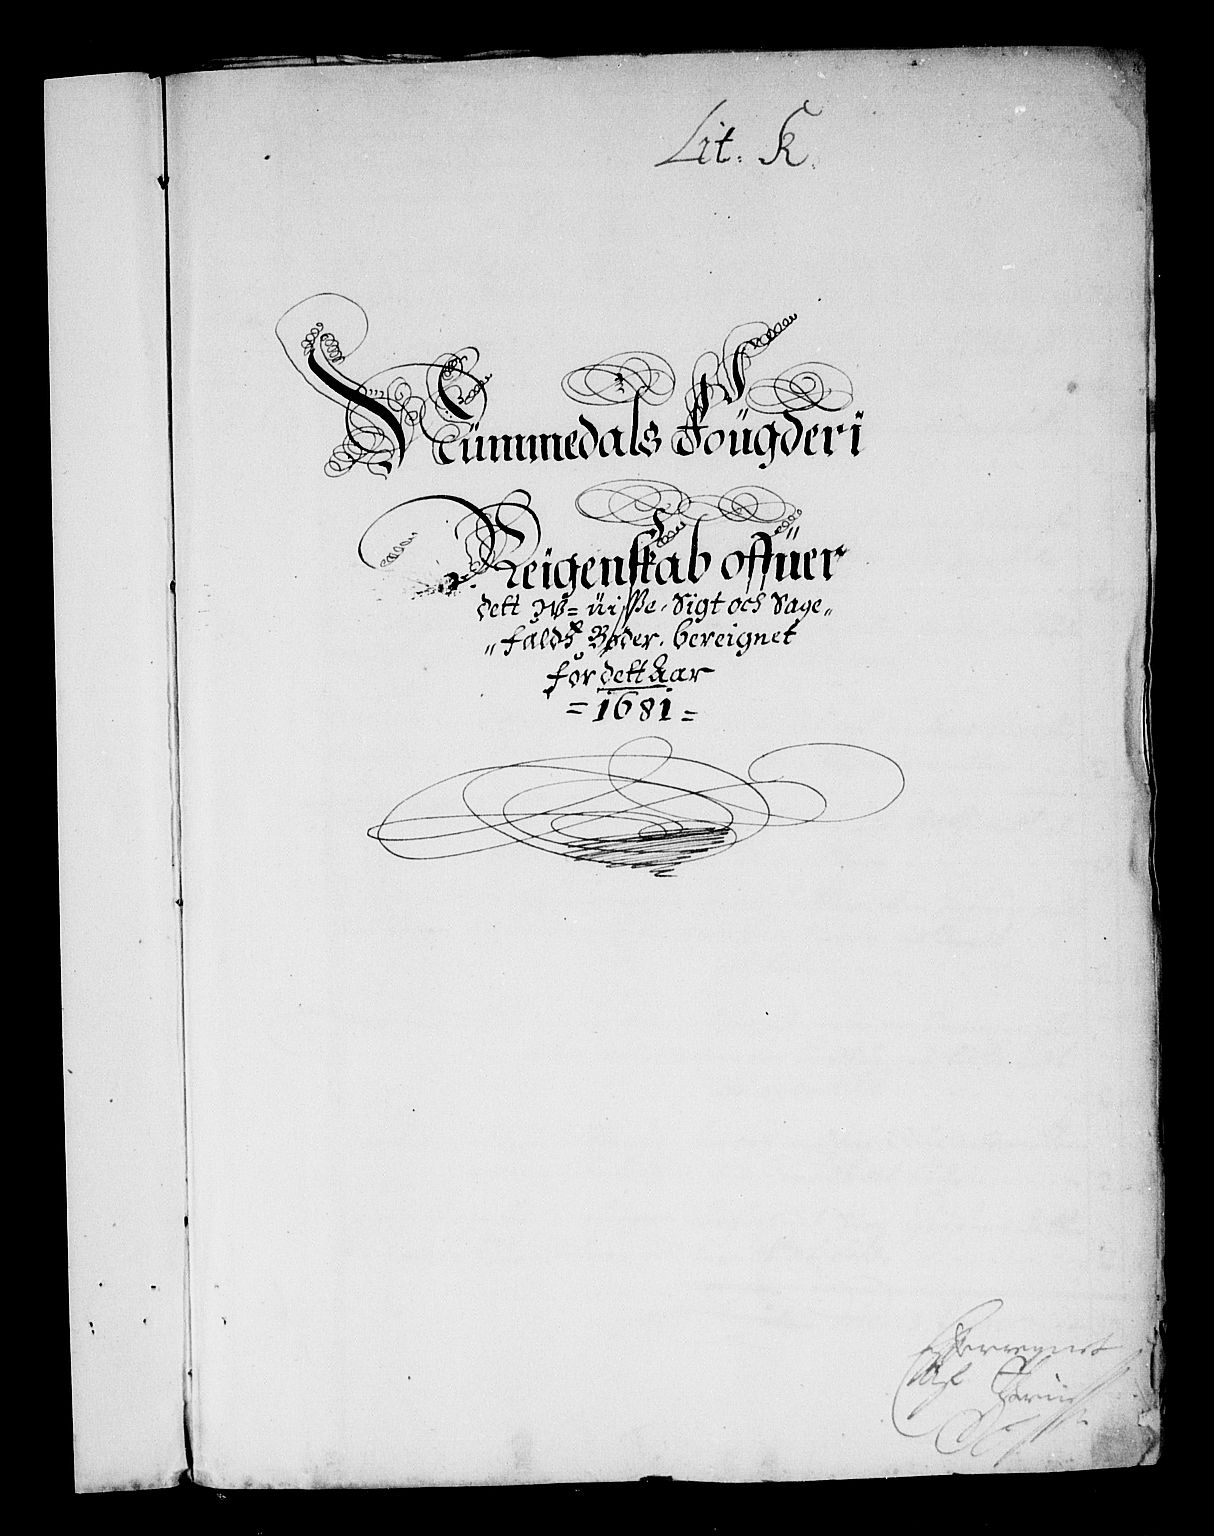 Lit. K.
Nümmedals Fougderi
Reigenskab offüer
dett W= üisse, Sigt och Sage„
„falds Bøder, bereignet
for dett Aar
= 1681 =
Efterregnet